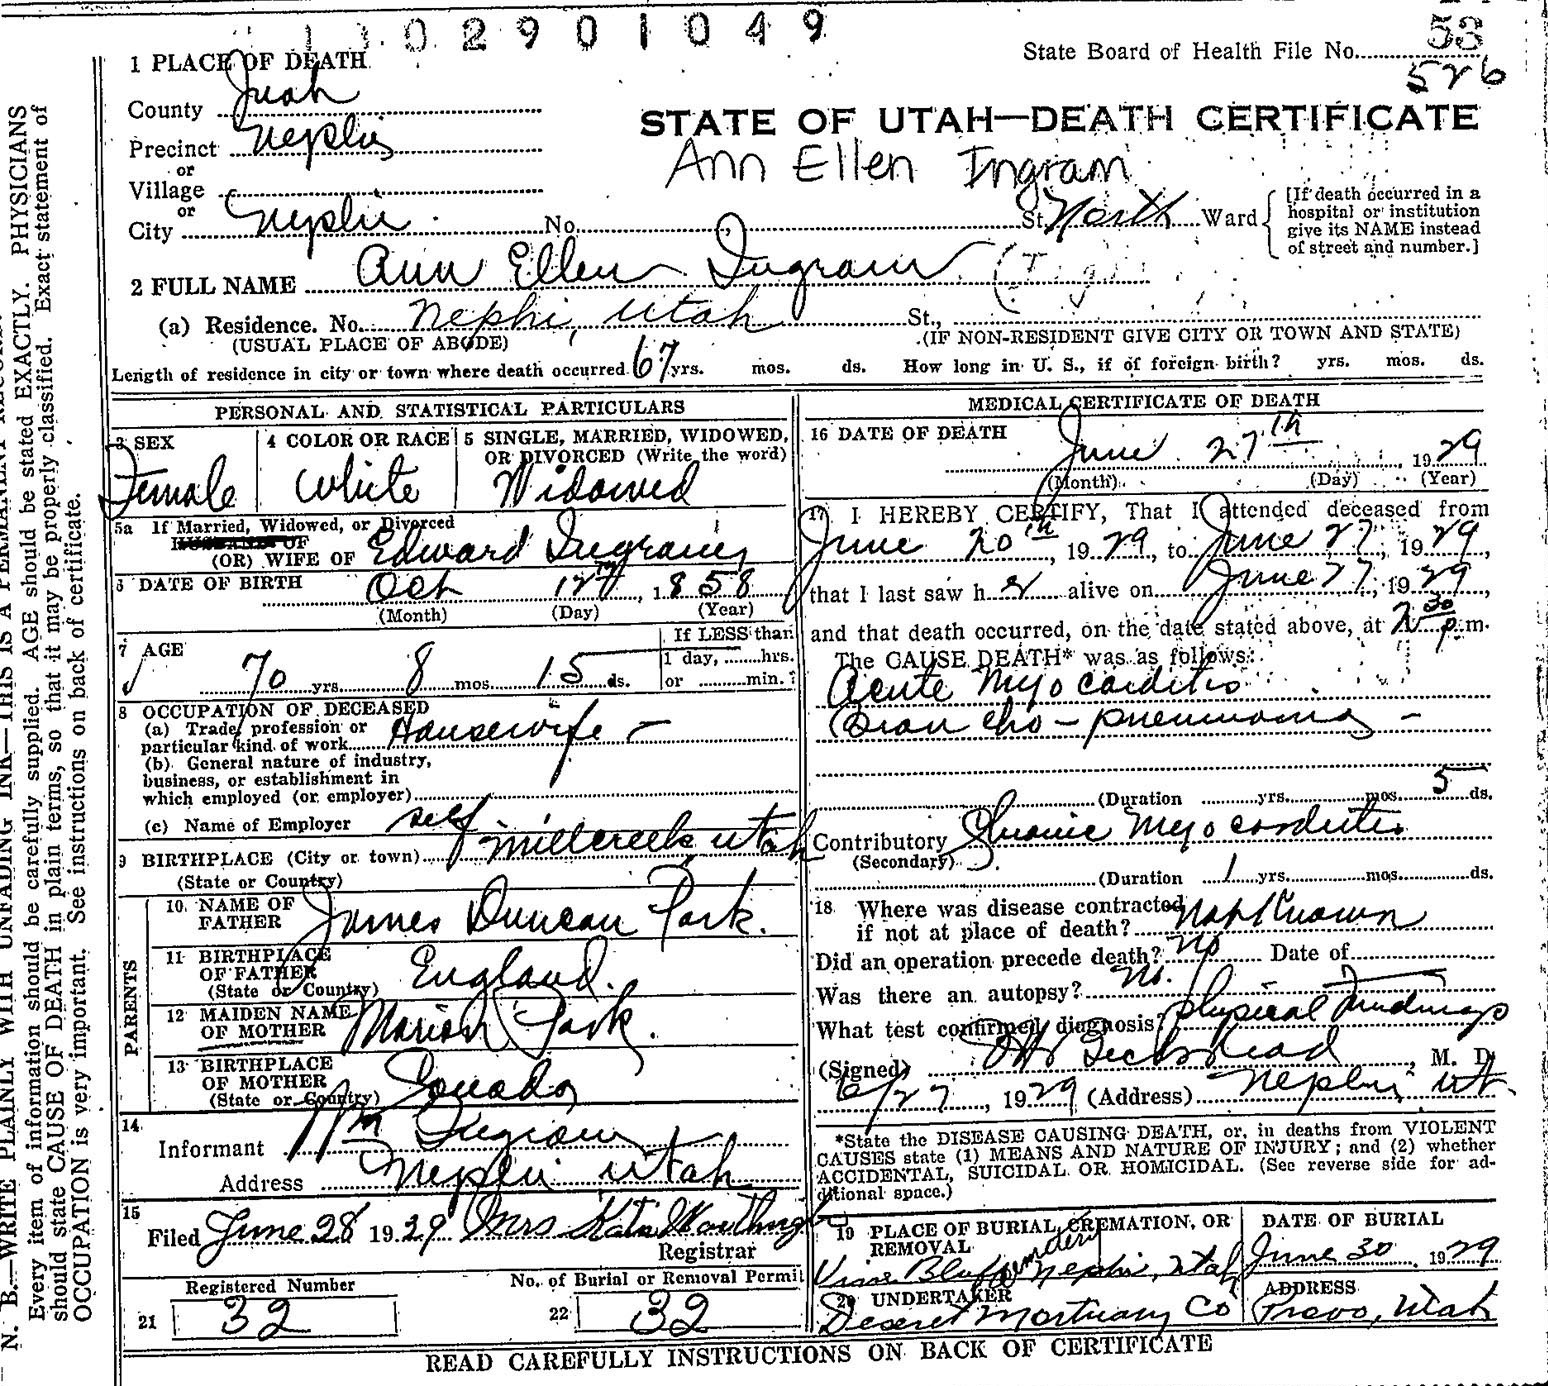 02901049
State Board of Health File No. 53
526
1 PLACE OF DEATH
County Juab
Precinct Nephi
or
Village
or
City Nephi No. St. North Ward
[If death occurred in a
hospital or institution
give its NAME instead
of street and number.]
STATE OF UTAH—DEATH CERTIFICATE
Ann Ellen Ingram
2 FULL NAME Ann Ellen Ingram
(a) Residence. No. Nephi, Utah St.,
(USUAL PLACE OF ABODE) (IF NON-RESIDENT GIVE CITY OR TOWN AND STATE)
Length of residence in city or town where death occurred 67 yrs. mos. ds. How long in U. S., if of foreign birth? yrs. mos. ds.
PERSONAL AND STATISTICAL PARTICULARS
3 SEX
Female
4 COLOR OR RACE
White
5 SINGLE, MARRIED, WIDOWED,
OR DIVORCED (Write the word)
Widowed
5a If Married, Widowed, or Divorced
HUSBAND OF
(OR) WIFE OF Edward Ingram
6 DATE OF BIRTH Oct 12th, 1858
(Month) (Day) (Year)
7 AGE
70 yrs. 8 mos. 15 ds.
If LESS than
1 day, hrs.
or min.?
8 OCCUPATION OF DECEASED
(a) Trade, profession or
particular kind of work Housewife —
(b) General nature of industry,
business, or establishment in
which employed (or employer)
(c) Name of Employer self
9 BIRTHPLACE (City or town) Millcreek Utah
(State or Country)
PARENTS
10 NAME OF
FATHER James Duncan Park.
11 BIRTHPLACE
OF FATHER England.
(State or Country)
12 MAIDEN NAME
OF MOTHER Mariah Park.
13 BIRTHPLACE
OF MOTHER Canada
(State or Country)
14
Informant Wm Ingram
Address Nephi Utah
15
Filed June 28 1929 Mrs Kate
Registrar
Registered Number
21 32
No. of Burial or Removal Permit
22 32
MEDICAL CERTIFICATE OF DEATH
16 DATE OF DEATH
June 27th, 1929
(Month) (Day) (Year)
17 I HEREBY CERTIFY, That I attended deceased from
June 20th, 1929, to June 27, 1929,
that I last saw her alive on June 27, 1929,
and that death occurred, on the date stated above, at 2 30 p.m.
The CAUSE DEATH* was as follows:
Acute Myocarditis
Broncho-pneumonia —
(Duration yrs. mos. 5 ds.
Contributory Chronic Myocarditis
(Secondary)
(Duration 1 yrs. mos. ds.
18 Where was disease contracted
if not at place of death? Not Known
Did an operation precede death? No Date of
Was there an autopsy? No.
What test confirmed diagnosis? Physical Findings
(Signed) Beckstead, M. D.
6/27, 1929 (Address) Nephi, Ut.
*State the DISEASE CAUSING DEATH, or, in deaths from VIOLENT
CAUSES state (1) MEANS AND NATURE OF INJURY; and (2) whether
ACCIDENTAL, SUICIDAL OR HOMICIDAL. (See reverse side for ad-
ditional space.)
19 PLACE OF BURIAL, CREMATION, OR
REMOVAL
Vine Bluff Cemetery Nephi, Utah
DATE OF BURIAL
June 30 1929
20 UNDERTAKER
Deseret Mortuary Co
ADDRESS
Provo, Utah
READ CAREFULLY INSTRUCTIONS ON BACK OF CERTIFICATE
N. B.—WRITE PLAINLY WITH UNFADING INK—THIS IS A PERMANENT RECORD.
Every item of information should be carefully supplied. AGE should be stated EXACTLY. PHYSICIANS
should state CAUSE OF DEATH in plain terms, so that it may be properly classified. Exact statement of
OCCUPATION is very important. See instructions on back of certificate.